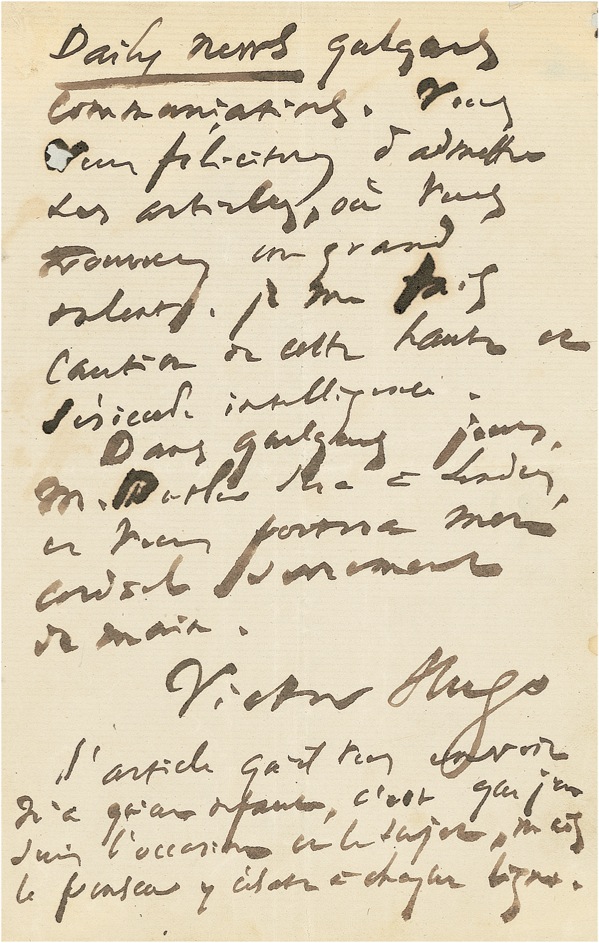 Daily news quelques
communications. Vous
vous féliciterez d'admettre
ses articles, où vous
trouverez un grand
talent. je me fais
caution de cette haute et
sérieuse intelligence.
Dans quelques jours,
M. sera à Londres,
et vous portera mon
cordial serrement
de main.
Victor Hugo
L'article qu'il vous envoie
n'a qu'un défaut, c'est que j'en
suis l'occasion et le sujet, mais
la pensée y éclate à chaque ligne.